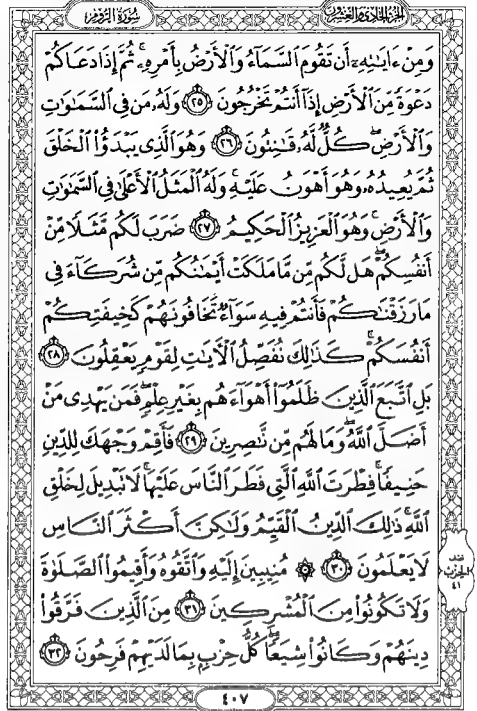 سورة الروم
الجزء الحادي والعشرون
وَمِنْ ءَايَـٰتِهِۦٓ أَن تَقُومَ ٱلسَّمَآءُ وَٱلْأَرْضُ بِأَمْرِهِۦ ۚ ثُمَّ إِذَا دَعَاكُمْ
دَعْوَةً مِّنَ ٱلْأَرْضِ إِذَآ أَنتُمْ تَخْرُجُونَ ٢٥ وَلَهُۥ مَن فِى ٱلسَّمَـٰوَٰتِ
وَٱلْأَرْضِ ۖ كُلٌّ لَّهُۥ قَـٰنِتُونَ ٢٦ وَهُوَ ٱلَّذِى يَبْدَؤُا۟ ٱلْخَلْقَ
ثُمَّ يُعِيدُهُۥ وَهُوَ أَهْوَنُ عَلَيْهِ ۚ وَلَهُ ٱلْمَثَلُ ٱلْأَعْلَىٰ فِى ٱلسَّمَـٰوَٰتِ
وَٱلْأَرْضِ ۚ وَهُوَ ٱلْعَزِيزُ ٱلْحَكِيمُ ٢٧ ضَرَبَ لَكُم مَّثَلًا مِّنْ
أَنفُسِكُمْ ۖ هَل لَّكُم مِّن مَّا مَلَكَتْ أَيْمَـٰنُكُم مِّن شُرَكَآءَ فِى
مَا رَزَقْنَـٰكُمْ فَأَنتُمْ فِيهِ سَوَآءٌ تَخَافُونَهُمْ كَخِيفَتِكُمْ
أَنفُسَكُمْ ۚ كَذَٰلِكَ نُفَصِّلُ ٱلْـَٔايَـٰتِ لِقَوْمٍ يَعْقِلُونَ ٢٨
بَلِ ٱتَّبَعَ ٱلَّذِينَ ظَلَمُوٓا۟ أَهْوَآءَهُم بِغَيْرِ عِلْمٍ ۖ فَمَن يَهْدِى مَنْ
أَضَلَّ ٱللَّهُ ۖ وَمَا لَهُم مِّن نَّـٰصِرِينَ ٢٩ فَأَقِمْ وَجْهَكَ لِلدِّينِ
حَنِيفًا ۚ فِطْرَتَ ٱللَّهِ ٱلَّتِى فَطَرَ ٱلنَّاسَ عَلَيْهَا ۚ لَا تَبْدِيلَ لِخَلْقِ
ٱللَّهِ ۚ ذَٰلِكَ ٱلدِّينُ ٱلْقَيِّمُ وَلَـٰكِنَّ أَكْثَرَ ٱلنَّاسِ
لَا يَعْلَمُونَ ٣٠ ۞ مُنِيبِينَ إِلَيْهِ وَٱتَّقُوهُ وَأَقِيمُوا۟ ٱلصَّلَوٰةَ
وَلَا تَكُونُوا۟ مِنَ ٱلْمُشْرِكِينَ ٣١ مِنَ ٱلَّذِينَ فَرَّقُوا۟
دِينَهُمْ وَكَانُوا۟ شِيَعًا ۖ كُلُّ حِزْبٍۭ بِمَا لَدَيْهِمْ فَرِحُونَ ٣٢
نصف
الحزب
٤١
٤٠٧